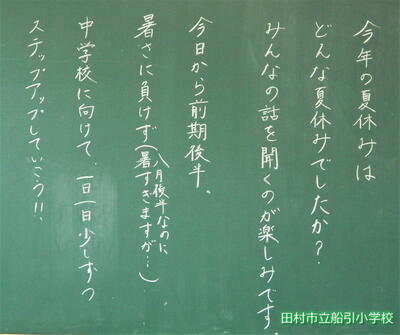 今年の夏休みは
どんな夏休みでしたか？
みんなの話を聞くのが楽しみです。
今日から前期後半。
暑さに負けず（八月後半なのに
暑すぎますが…）
中学校に向けて、一日一日少しずつ
ステップアップしていこう!!
田村市立船引小学校